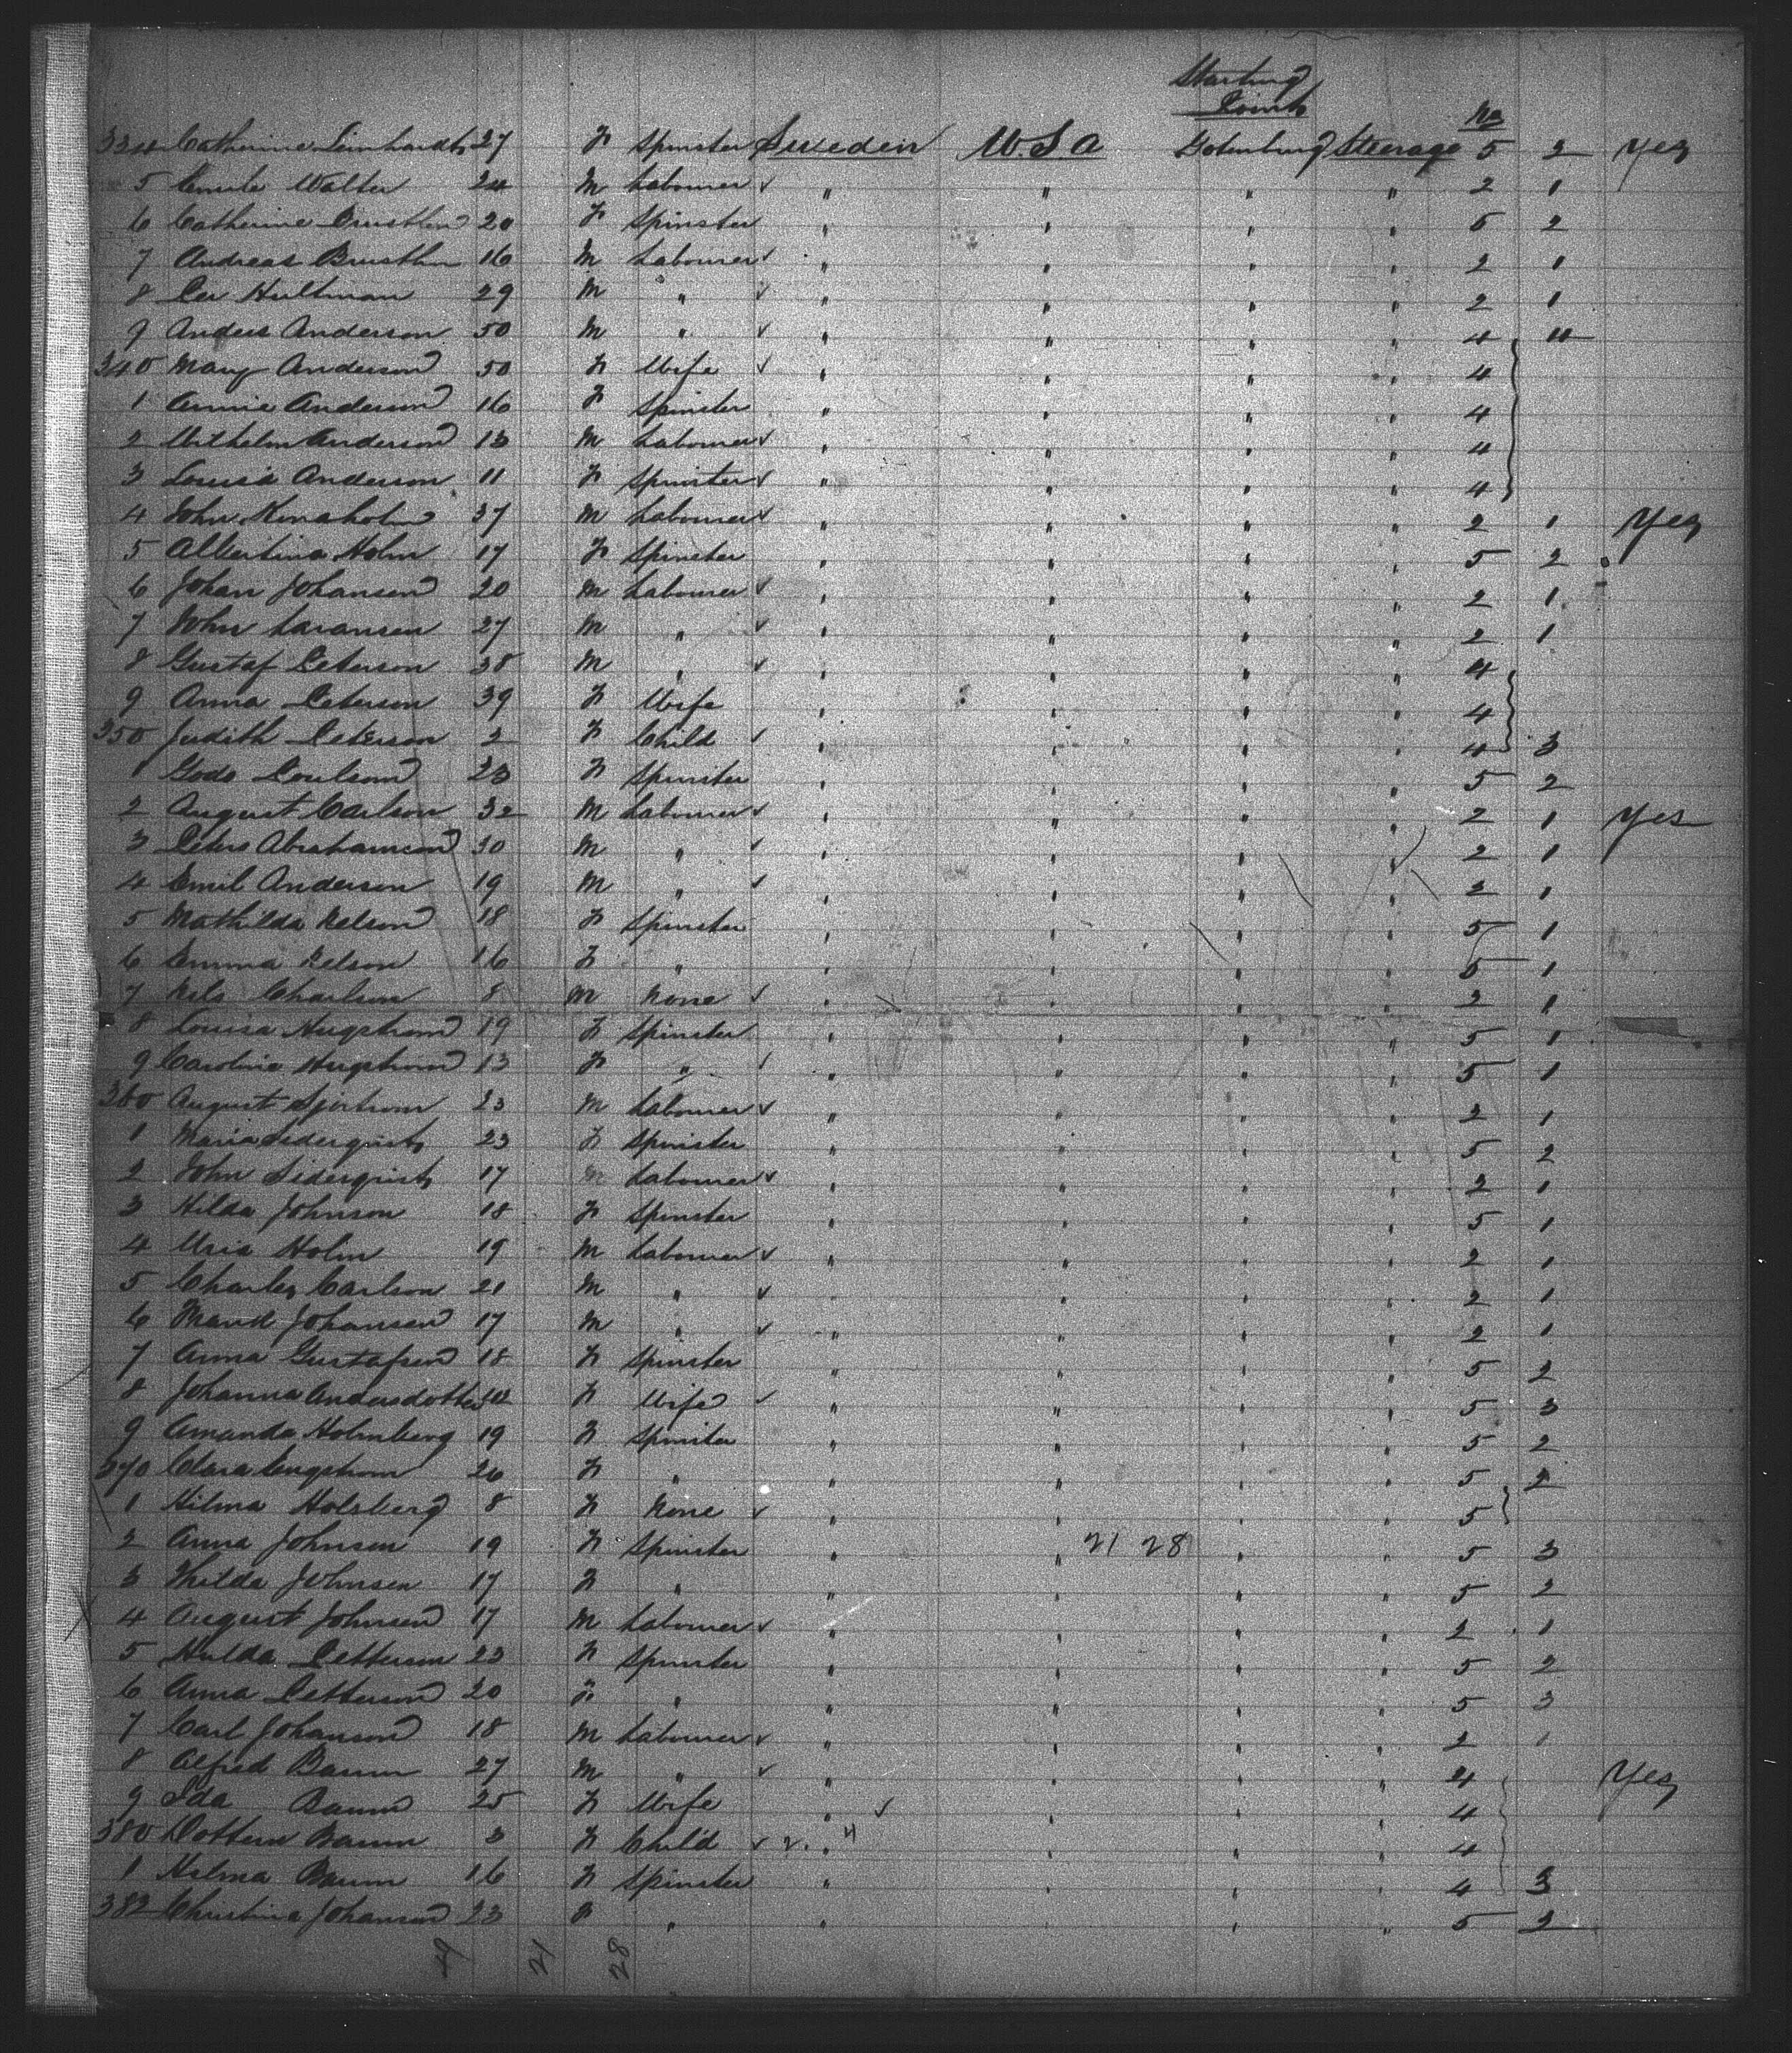 Starting
Point No
334 Catherine Leinhardt 27 F Spinster Sweden U.S.A Gotenburg Steerage 5 2 Yes
5 Emile Walter 24 M Labourer ✓ " " " " 2 1
6 Catherine 20 F Spinster " " " " 5 2
7 Andreas 16 M Labourer ✓ " " " " 2 1
8 Per Hultman 29 M " ✓ " " " " 2 1
9 Anders Anderson 50 M " ✓ " " " " 4 4
340 Mary Anderson 50 F Wife ✓ " " " " 4
1 Annie Anderson 16 F Spinster " " " " 4
2 Wilhelm Anderson 13 M Labourer ✓ " " " " 4
3 Louisa Anderson 11 F Spinster ✓ " " " " 4
4 John 37 M Labourer ✓ " " " " 2 1 Yes
5 Albertina Holm 17 F Spinster " " " " 5 2
6 Johan Johansen 20 M Labourer ✓ " " " " 2 1
7 John Laransen 27 M " ✓ " " " " 2 1
8 Gustaf Peterson 38 M " ✓ " " " " 4
9 Anna Peterson 39 F Wife " " " " 4
350 Judith Peterson 2 F Child ✓ " " " " 4 3
1 Poulsom 23 F Spinster " " " " 5 2
2 August Carlson 32 M Labourer ✓ " " " " 2 1 Yes
3 Peters Abrahamson 30 M " ✓ " " " " 2 1
4 Emil Anderson 19 M " ✓ " " " " 2 1
5 Mathilda Nelson 18 F Spinster " " " " 5 1
6 Emma Nelson 16 F " " " " " 5 1
7 Nils Charlson 8 M None ✓ " " " " 2 1
8 Louisa Hugstrom 19 F Spinster " " " " 5 1
9 Carolina Hugstrom 13 F " ✓ " " " " 5 1
360 August Sjostrom 23 M Labourer ✓ " " " " 2 1
1 Maria Siderqvist 23 F Spinster " " " " 5 2
2 John Siderqvist 17 M Labourer ✓ " " " " 2 1
3 Hilda Johnson 18 F Spinster " " " " 5 1
4 Holm 19 M Labourer ✓ " " " " 2 1
5 Charles Carlson 21 M " ✓ " " " " 2 1
6 Johansen 17 M " ✓ " " " " 2 1
7 Anna Gustafsen 18 F Spinster " " " " 5 2
8 Johanna Andersdotter F Wife ✓ " " " " 5 3
9 Amanda Holmberg 19 F Spinster " " " " 5 2
370 Clara Engstrom 26 F " " " " " 5 2
1 Hilma Holsberg 8 F None ✓ " " " " 5
2 Anna Johnson 19 F Spinster " " 21 28 " " 5 3
3 Johnsen 17 F " " " " " 5 2
4 August Johnsen 17 M Labourer ✓ " " " " 2 1
5 Hulda Petterson 23 F Spinster " " " " 5 2
6 Anna Petterson 20 F " " " " " 5 2
7 Carl Johanson 18 M Labourer ✓ " " " " 2 1
8 Alfred Baum 27 M " ✓ " " " " 4 Yes
9 Ida Baum 25 F Wife " ✓ " " " 4
380 Baum 3 F Child ✓ 2. " 4 " " " 4
1 Hilma Baum 16 F Spinster " " " " 4 3
382 Christina Johanson 23 F " " " " " 5 2
49 21 28